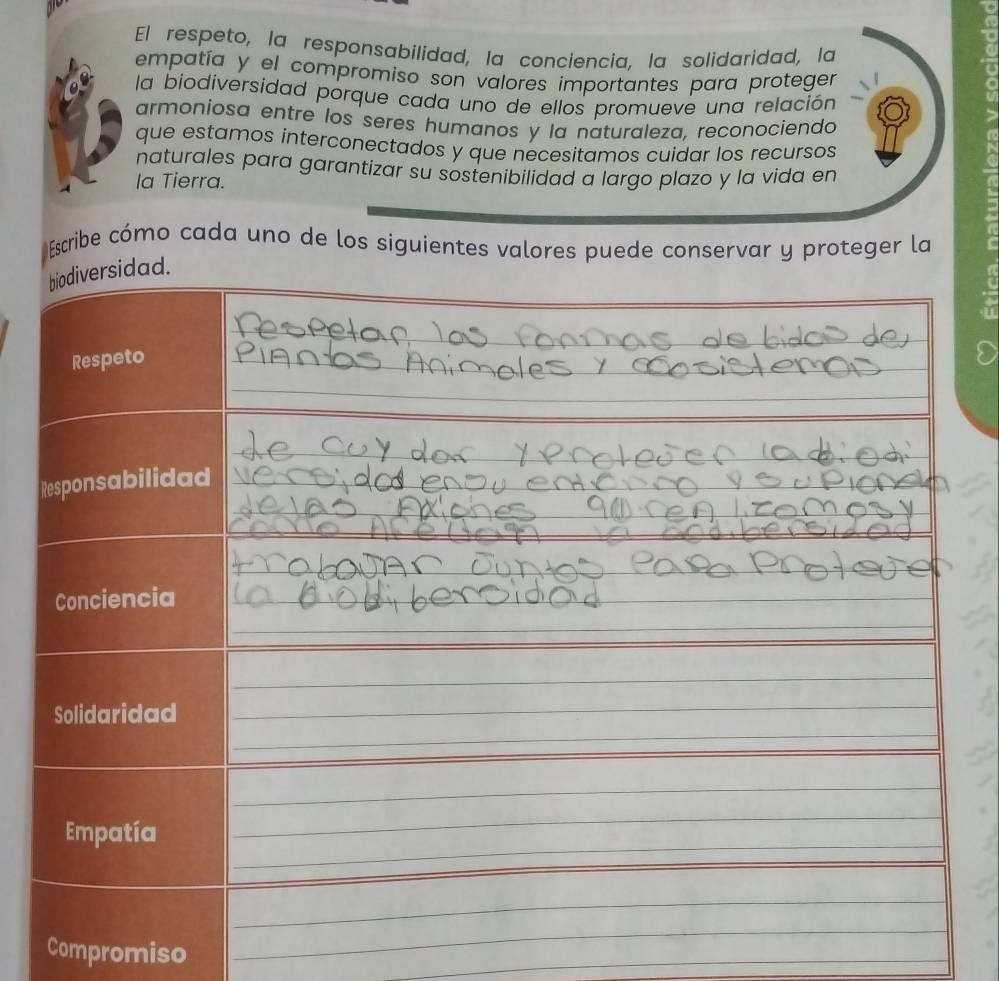 El respeto, la responsabilidad, la conciencia, la solidaridad, la
empatía y el compromiso son valores importantes para proteger
la biodiversidad porque cada uno de ellos promueve una relación
armoniosa entre los seres humanos y la naturaleza, reconociendo
que estamos interconectados y que necesitamos cuidar los recursos
naturales para garantizar su sostenibilidad a largo plazo y la vida en
la Tierra.
Escribe cómo cada uno de los siguientes valores puede conservar y proteger la
biodiversidad.
Respeto
respetar las formas de bidas de
PlAntas Animales y ecosistemas
Responsabilidad
de cuydar y protejer la biodi
versidad en su
de las Axiones
Conciencia
trabajAr juntos para protejer
la biodibersidad
Solidaridad
Empatía
Compromiso
Ética, naturaleza y sociedad